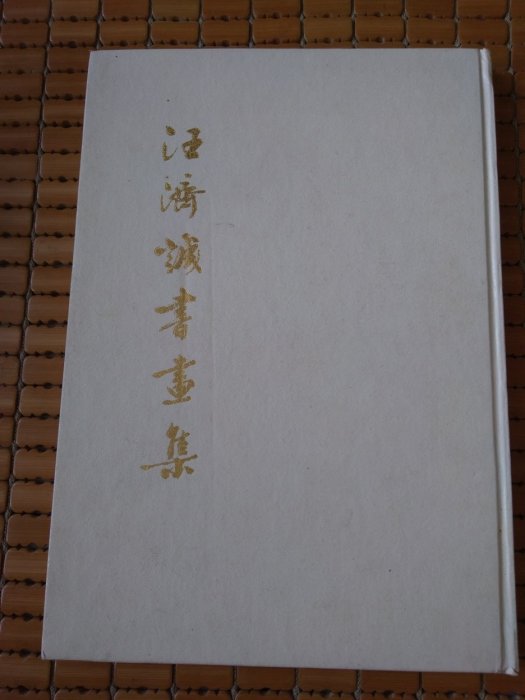 汪濟誠書畫集